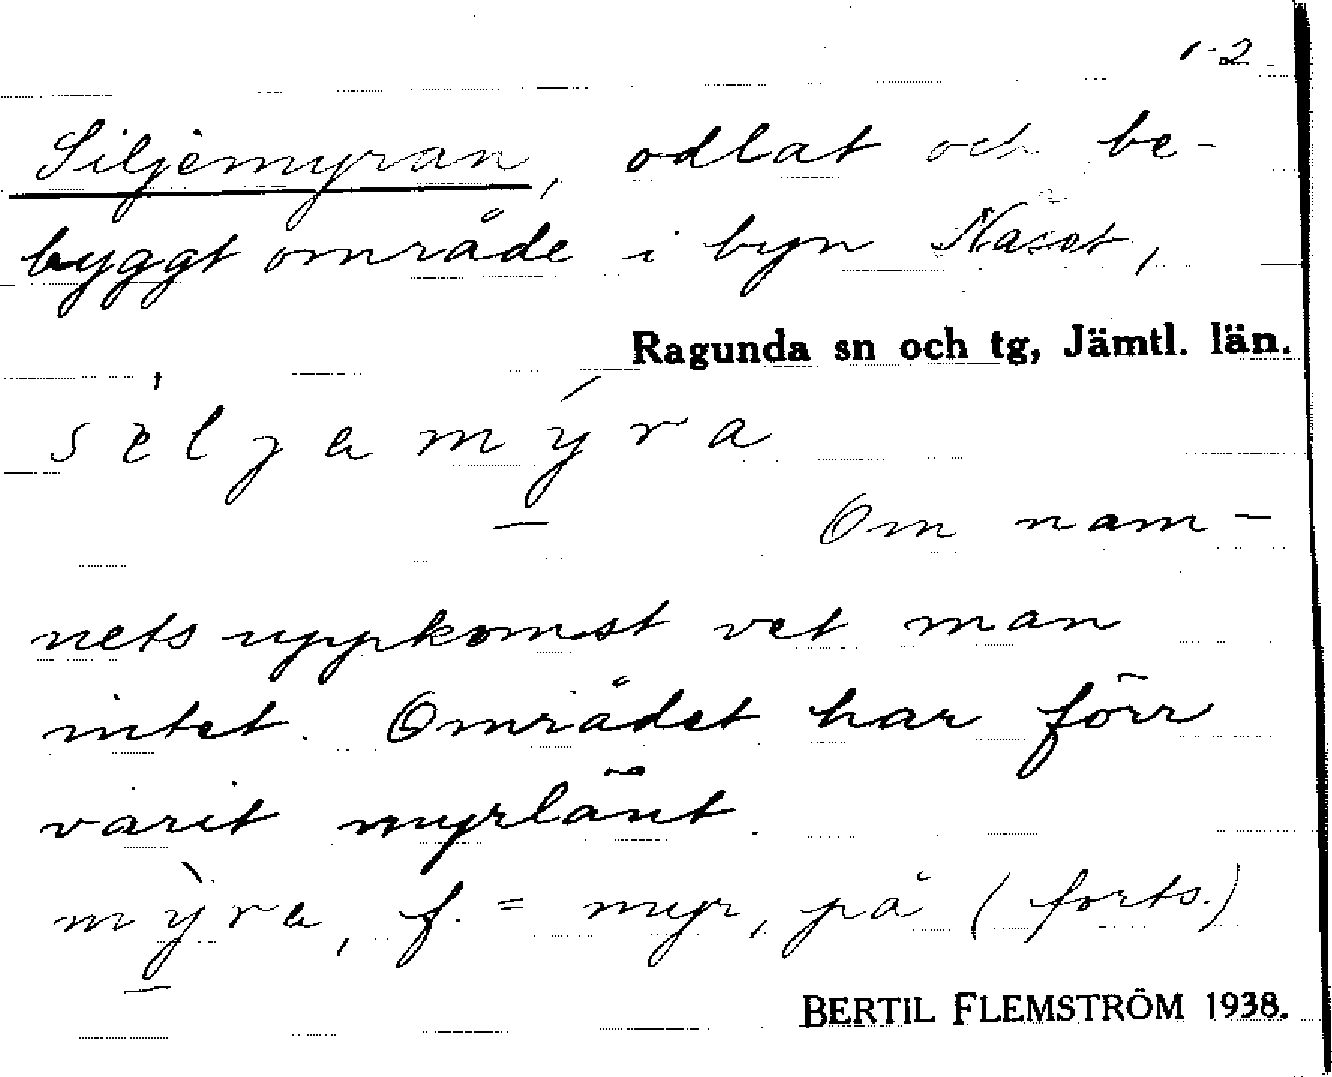 1-2
Siljemyran, odlat och be-
byggt område i byn Näset,
Ragunda sn och tg, Jämtl. län.
sèljamýra
Om nam-
nets uppkomst vet man
intet. Området har förr
varit myrlänt.
mỳra, f. = myr, på (forts.)
BERTIL FLEMSTRÖM 1938.